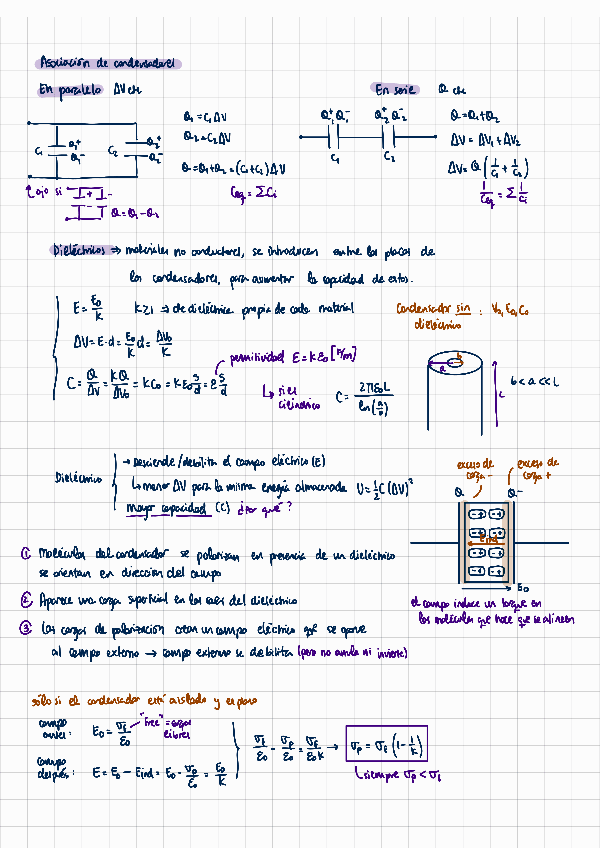 Asociación de condensadores
En paralelo ΔV cte
En serie Q cte
Q₁ = C₁ΔV
Q₂ = C₂ΔV
Q = Q₁ + Q₂ = (C₁ + C₂)ΔV
Ceq = ΣCi
C₁ Q₁⁺ Q₁⁻ C₂ Q₂⁺ Q₂⁻
ojo si + -
Q = Q₁ - Q₂
Q₁⁺ Q₁⁻ Q₂⁺ Q₂⁻
C₁ C₂
Q = Q₁ + Q₂
ΔV = ΔV₁ + ΔV₂
ΔV = Q (1/C₁ + 1/C₂)
1/Ceq = Σ 1/Ci
Dieléctricos ⇒ materiales no conductores, se introducen entre las placas de
los condensadores, para aumentar la capacidad de estos.
E = E₀/K K ≥ 1 → cte dieléctrica propia de cada material
ΔV = E·d = E₀/K d = ΔV₀/K
C = Q/ΔV = KQ/ΔV₀ = KC₀ = Kε₀ S/d = ε S/d
permitividad ε = Kε₀ [F/m]
↳ si es
cilíndrico
C = 2πε₀L / ln(a/b)
Condensador sin : V₀, E₀, C₀
dieléctrico
a b L
b < a << L
Dieléctrico
→ Desciende/debilita el campo eléctrico (E)
↳ menor ΔV para la misma energía almacenada U = ½C(ΔV)²
mayor capacidad (C) ¿Por qué?
exceso de
carga -
exceso de
carga +
Q Q⁻
Eind
E₀
① Moléculas del condensador se polarizan en presencia de un dieléctrico
se orientan en dirección del campo
② Aparece una carga superficial en las caras del dieléctrico
③ Las cargas de polarización crean un campo eléctrico que se opone
al campo externo → campo externo se debilita (pero no anula ni invierte)
el campo induce un torque en
las moléculas que hace que se alineen
sólo si el condensador está aislado y es plano
campo
antes: E₀ = σf/ε₀ "Free" = cargas
libres
campo
después: E = E₀ - Eind = E₀ - σp/ε₀ = E₀/K
σf/ε₀ - σp/ε₀ = σf/ε₀K → σp = σf (1 - 1/K)
↳ siempre σp < σf